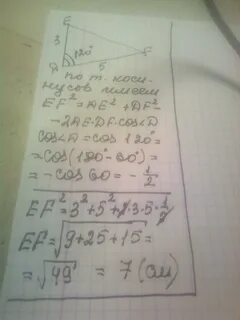 E
3
120°
D
5
F
по т. коси-
нусов имеем
EF² = DE² + DF² -
- 2DE·DF·cos∠D
cos∠D = cos 120° =
= cos(180° - 60°) =
= - cos 60 = - 1/2
EF² = 3² + 5² + 2·3·5·1/2
EF = √9+25+15 =
= √49 = 7 (см)